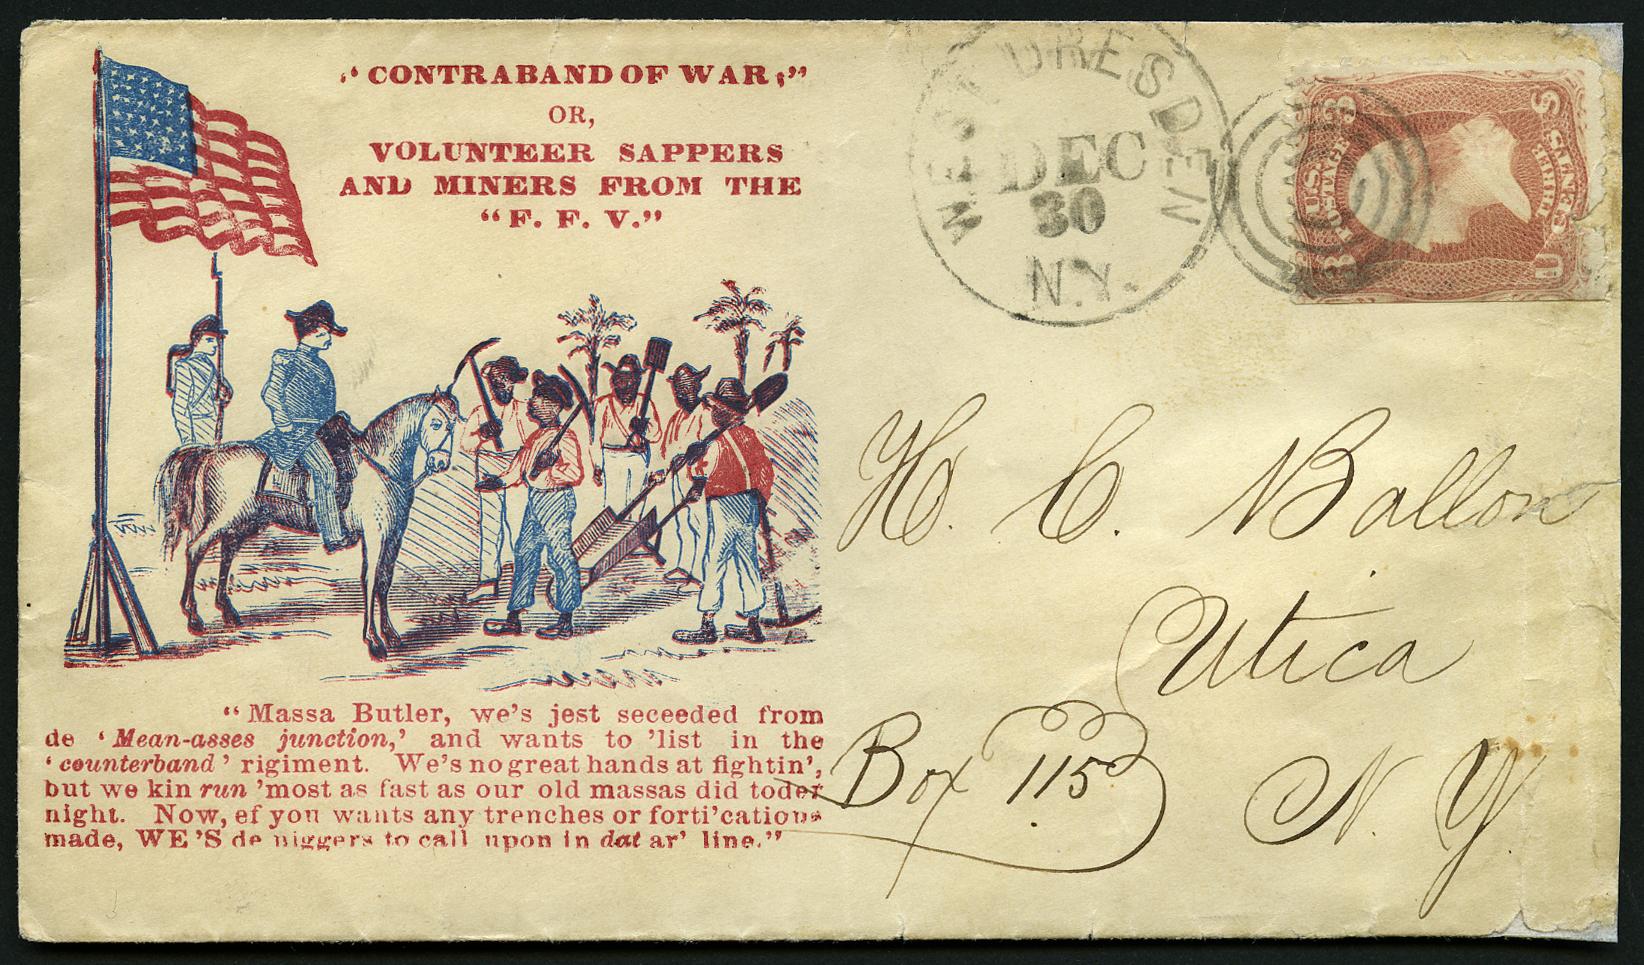 “CONTRABAND OF WAR;”
OR,
VOLUNTEER SAPPERS
AND MINERS FROM THE
“F. F. V.”
“Massa Butler, we's jest seceeded from
de ‘Mean-asses junction,’ and wants to 'list in the
‘counterband’ rigiment. We's no great hands at fightin',
but we kin run 'most as fast as our old massas did toder
night. Now, ef you wants any trenches or forti'cations
made, WE'S de niggers to call upon in dat ar' line.”
WEST DRESDEN
DEC
30
N.Y.
3 3
U.S.
POSTAGE
THREE
CENTS
U S
H. C. Ballou
Utica
Box 115
N. Y.